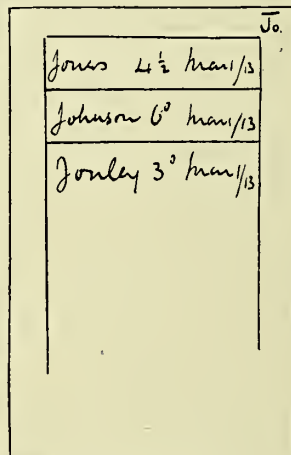 Jo.
Jones 4½ Mar 1/13
Johnson 6° Mar 1/13
Jonley 3° Mar 1/13